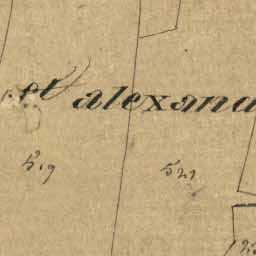 et alexand
519
521